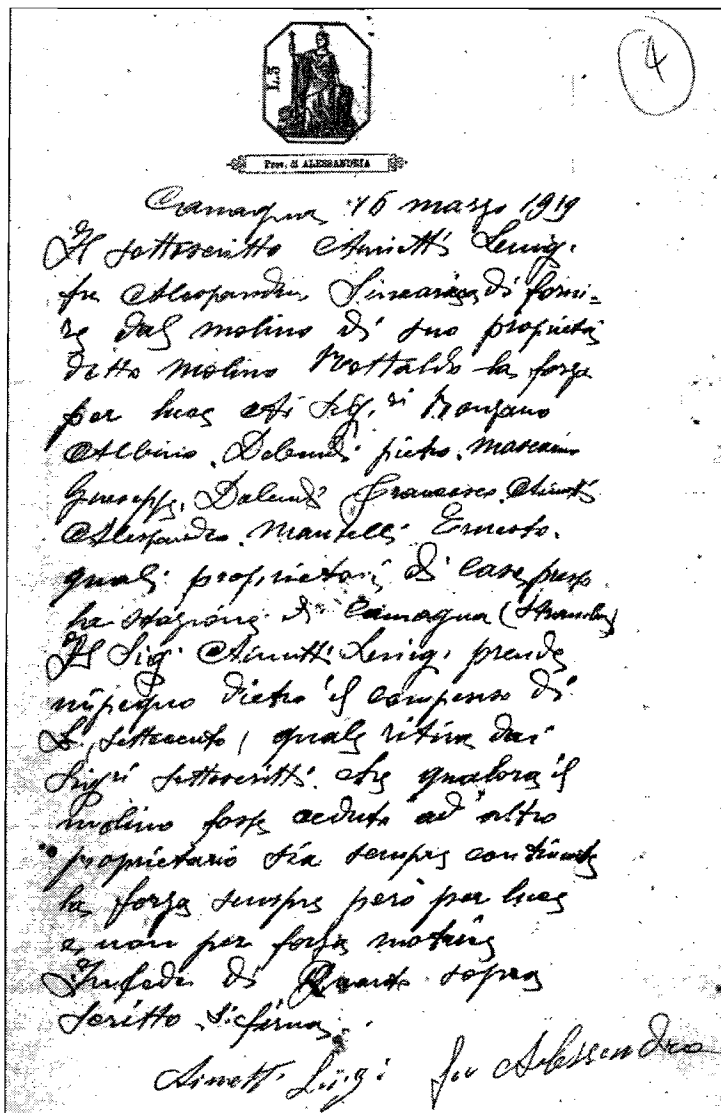 4
L.3
Prov. di ALESSANDRIA
Camagna 16 marzo 1919
Il sottoscritto Ainotti Luigi
fu Alessandro S'incarica di forni-
re dal molino di suo proprietà
ditto molino Rottaldo la forza
per luce Ai Sig.ri Monzano
Albino. Dalendi pietro. Mascarino
Giuseppe. Dalendi Francesco Ainotti
Alessandro. Mantelli Ernesto.
quali proprietari di case presso
la stazione di Camagna
Il Sig. Ainotti Luigi prende
impegno dietro il compenso di
L. settecento, quale ritira dai
Sigri sottoscritti. che qualora il
molino fosse ceduto ad altro
proprietario sia sempre continuata
la forza sempre però per luce
e, non per forza motrice
In fede di Quanto sopra
scritto si firma.
Ainotti Luigi fu Alessandro